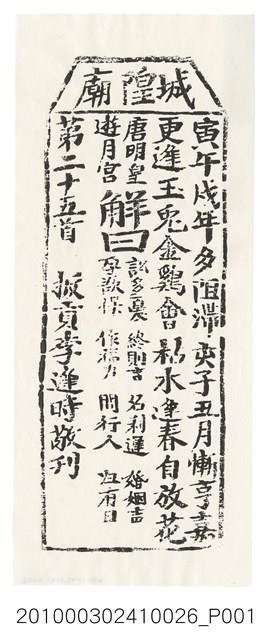 城隍廟
寅午戌年多阻滯亥子丑月漸亨嘉
更逢玉兎金鷄會枯木逢春自放花
唐明皇
遊月宮
解曰
訟多憂 終則吉 名利遲 婚姻吉
孕歡保 作福力 問行人 迎有日
第二十五首 振貢李逢時敬刊
201000302410026_P001